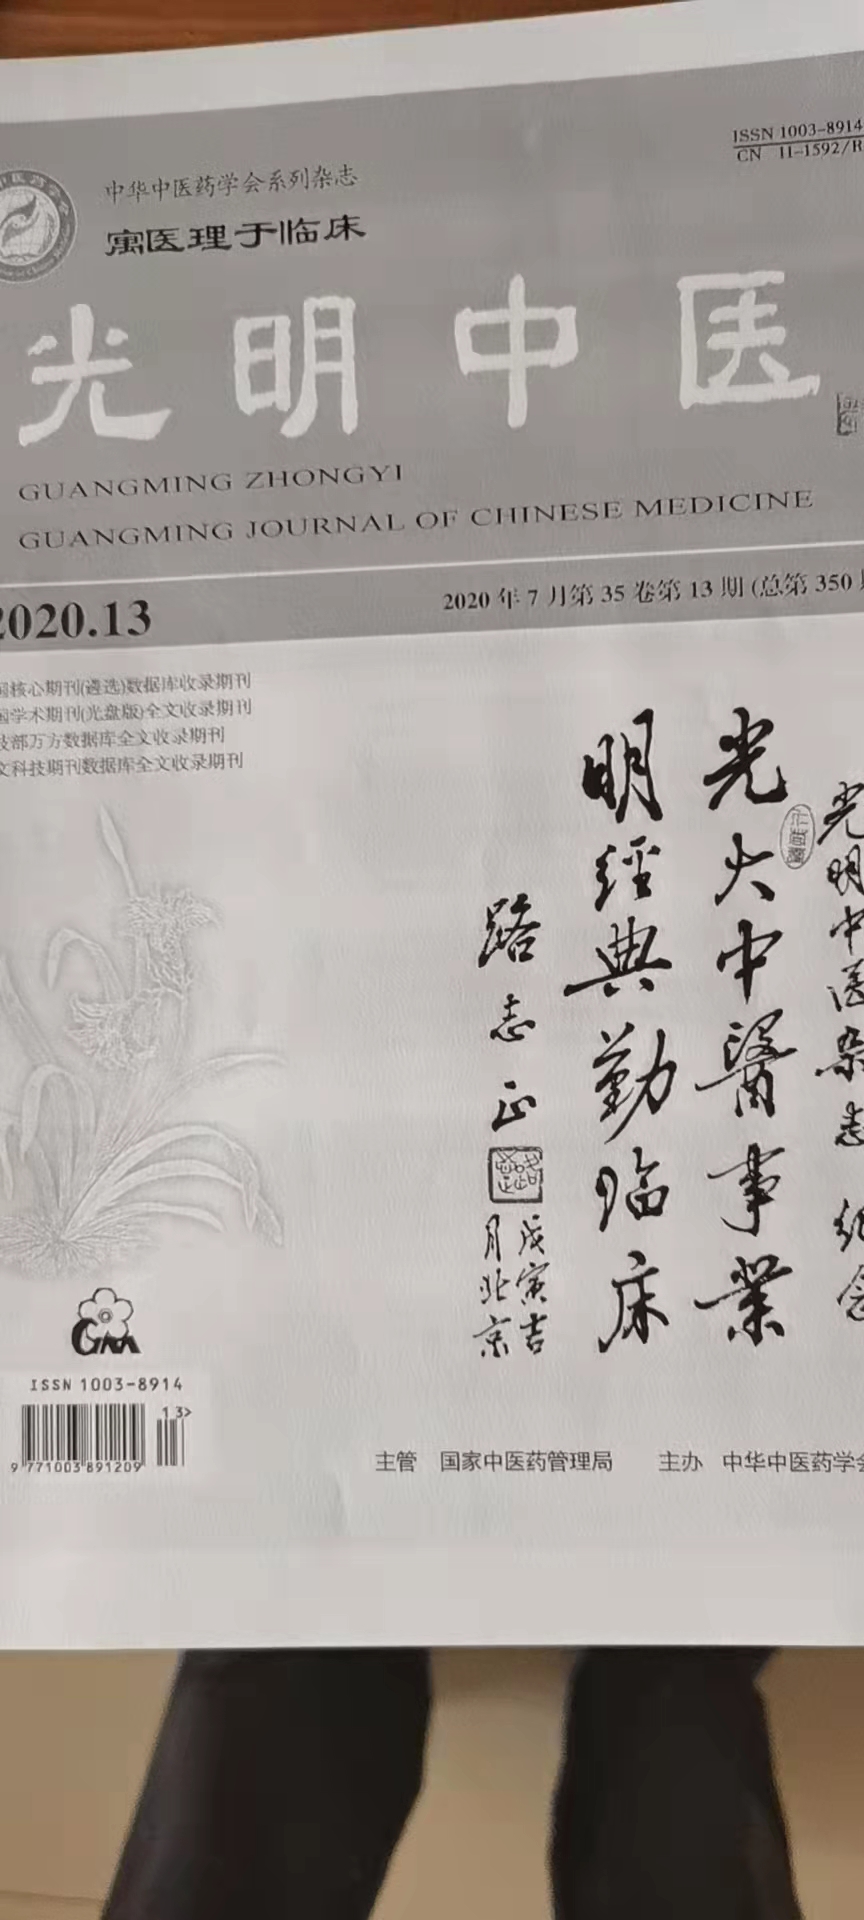 ISSN 1003-8914
CN 11-1592/R
中华中医药学会系列杂志
寓医理于临床
光明中医
GUANGMING ZHONGYI
GUANGMING JOURNAL OF CHINESE MEDICINE
2020.13
2020 年 7 月第 35 卷第 13 期 (总第 350
核心期刊(遴选)数据库收录期刊
学术期刊(光盘版)全文收录期刊
技部万方数据库全文收录期刊
文科技期刊数据库全文收录期刊
光明中医杂志 纪念
光大中醫事業
明經典勤临床
路志正
戊寅吉
月北京
ISSN 1003-8914
13>
9 771003 891209
主管 国家中医药管理局 主办 中华中医药学会